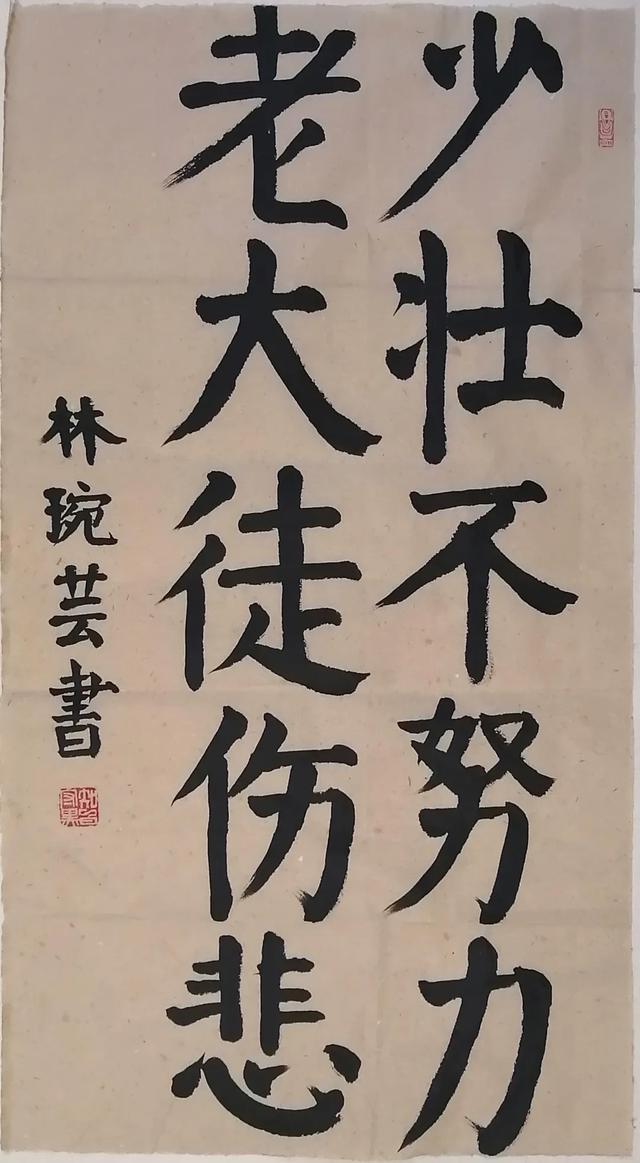 少壮不努力
老大徒伤悲
林琬芸書